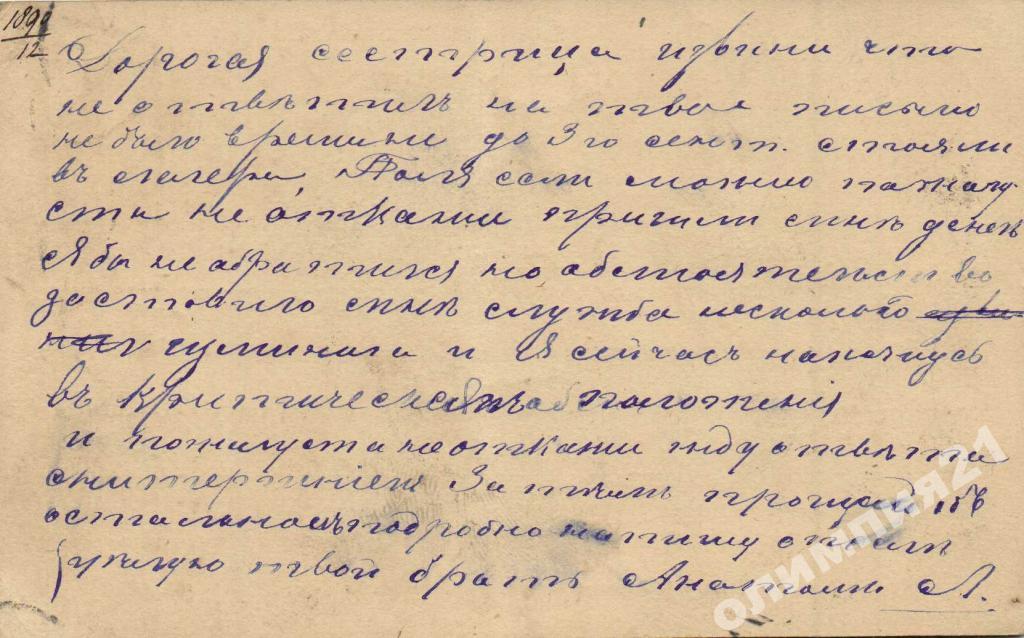 189
12
Дорогая сестрица извини что
не ответилъ на твое письмо
не было времини до 3го сент. стояли
въ лагери, Поля если можно пожалу-
ста не откажи пришли мнѣ денекъ
Я бы не обратился но обстоятельство
заставило мнѣ служба несколько
и я сейчасъ нахожусь
въ критическомъ положения
и пожалуста не откажи жду ответа
снитерпнием Затемъ прощай объ
остальномъ подробно напишу опосля
целую твой братъ Анатоли А.
олимпия21